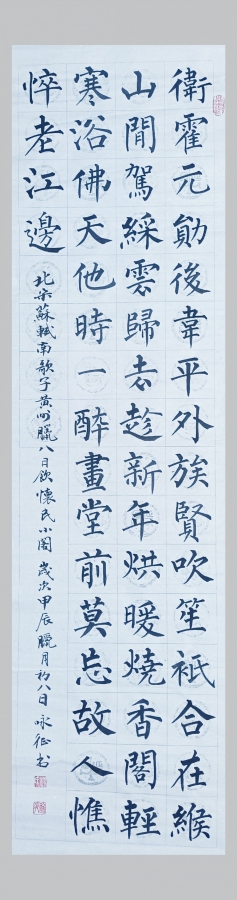 衛霍元勛後韋平外族賢吹笙祗合在緱
山閒駕綵雲歸去趁新年烘暖燒香閣輕
寒浴佛天他時一醉畫堂前莫忘故人憔
悴老江邊
北宋蘇軾南歌子黃州臘八日飲懷民小閣 歲次甲辰臘月初八日 咏征书